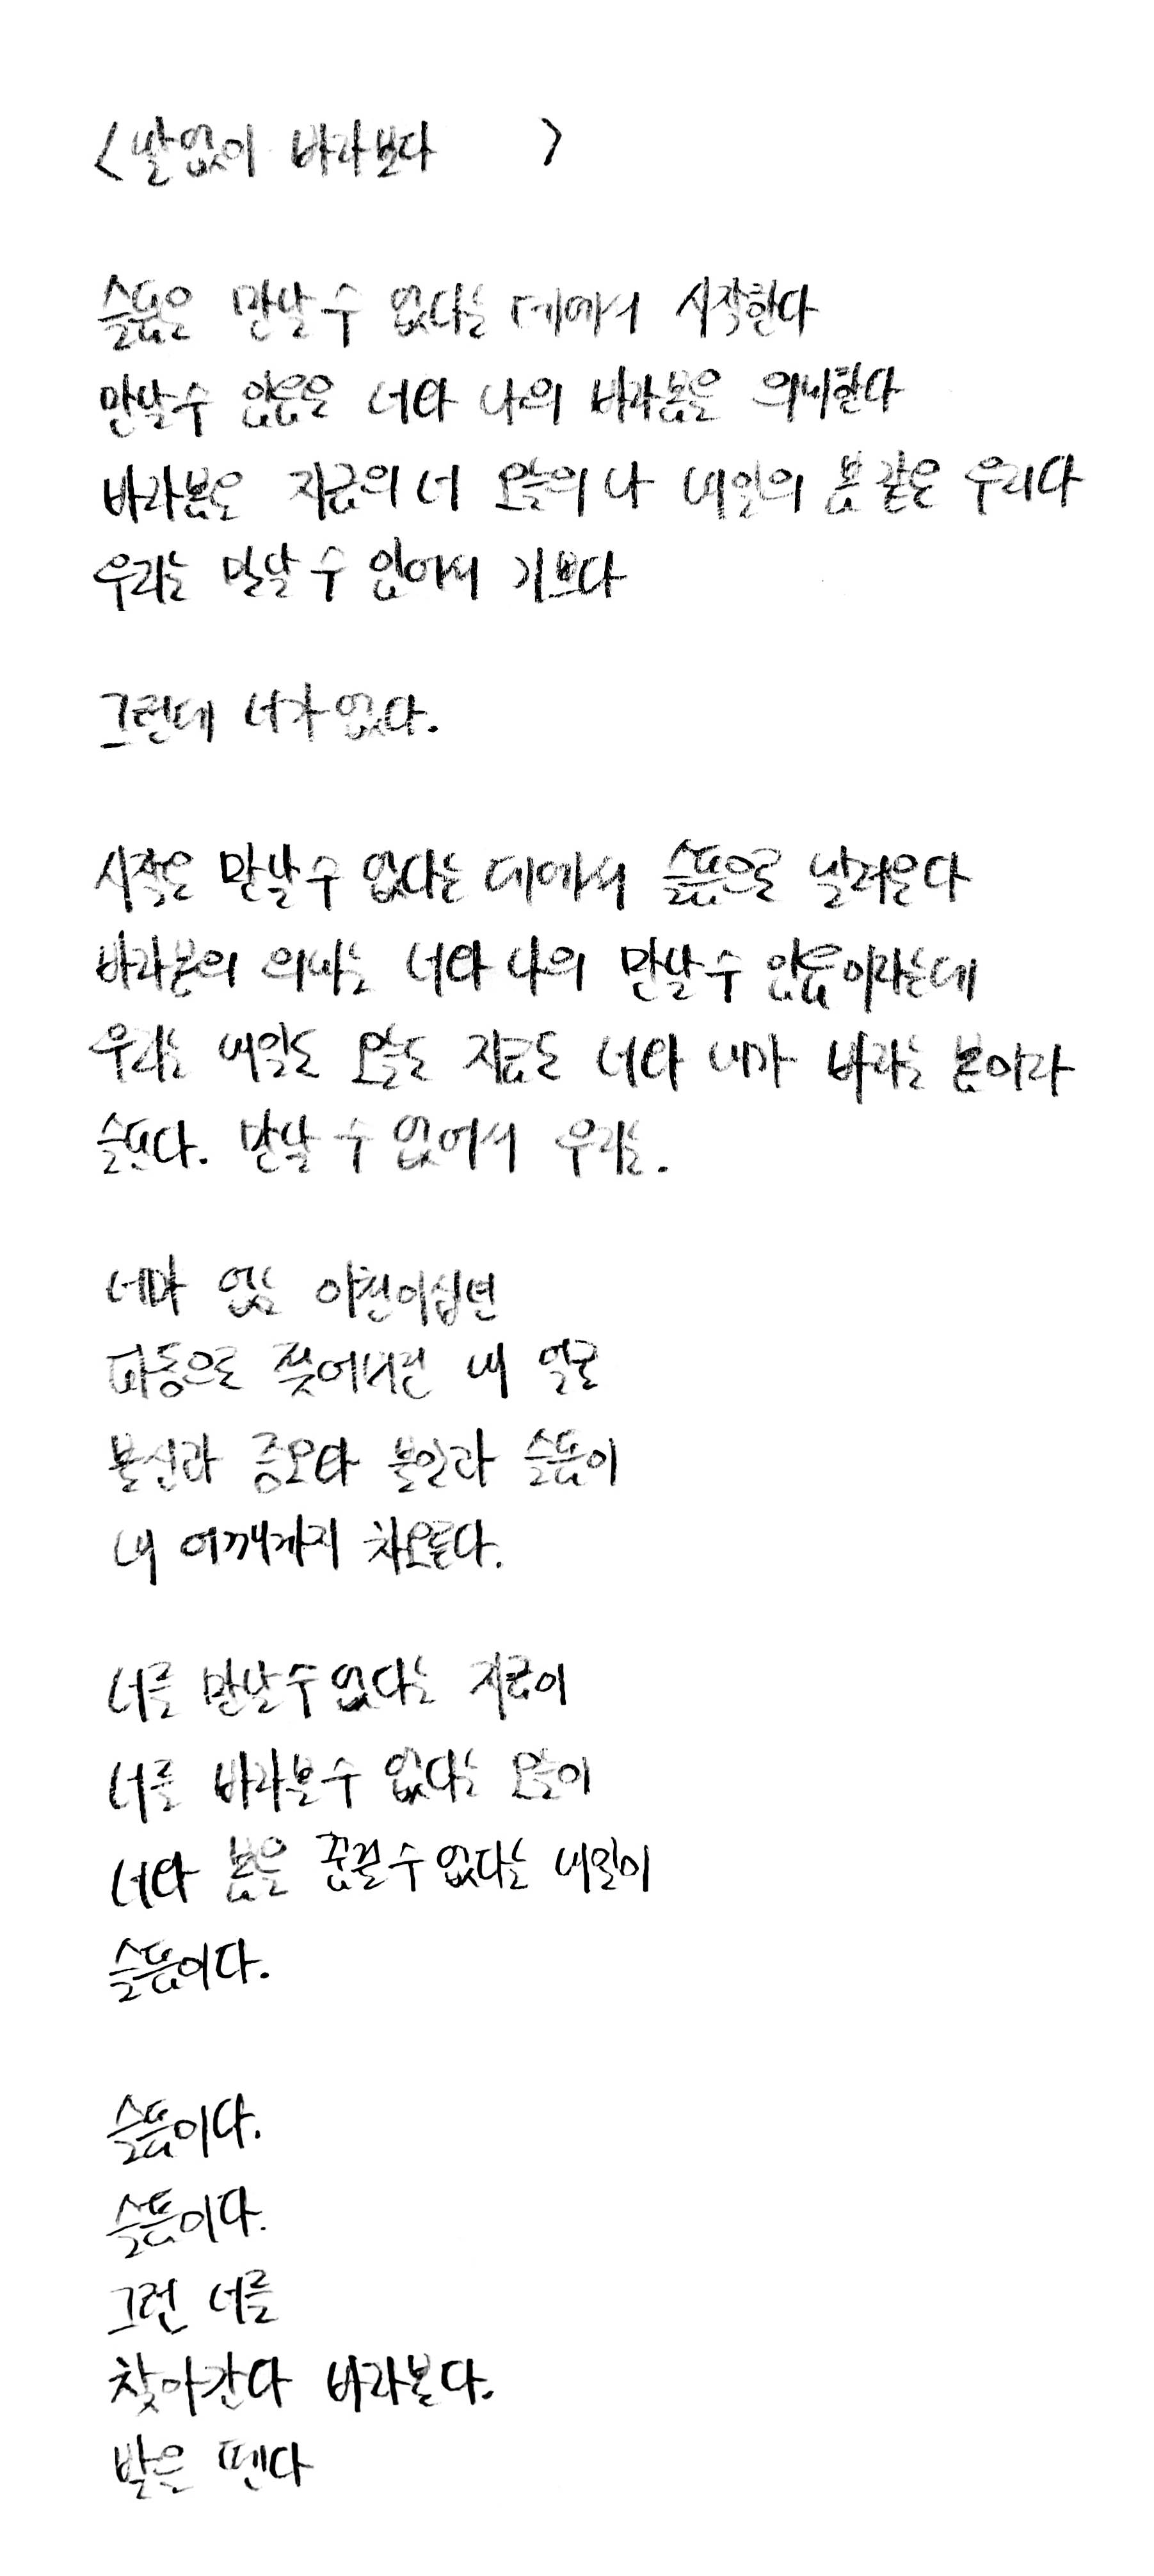 <말없이 바라보다 >
슬픔은 만날 수 없다는 데에서 시작한다
만날 수 있음은 너와 나의 바라봄을 의미한다
바라봄은 지금의 너 오늘의 나 내일의 봄 같은 우리다
우리는 만날 수 있어서 기쁘다
그런데 너가 없다.
시작은 만날 수 없다는 데에서 슬픔으로 날려온다
바라봄의 의미는 너와 나의 만날 수 있음이라는데
우리는 내일도 오늘도 지금도 너와 내가 바라는 봄이라
슬프다. 만날 수 없어서 우리는.
너마 없는 이천이십년
파동으로 찢어내린 내 얼굴
불신과 증오와 불안과 슬픔이
내 어깨까지 차오른다.
너를 만날 수 없다는 지금이
너를 바라볼 수 없다는 오늘이
너와 봄을 꿈꿀 수 없다는 내일이
슬픔이다.
슬픔이다.
슬픔이다.
그런 너를
찾아간다 바라본다.
발을 뗀다